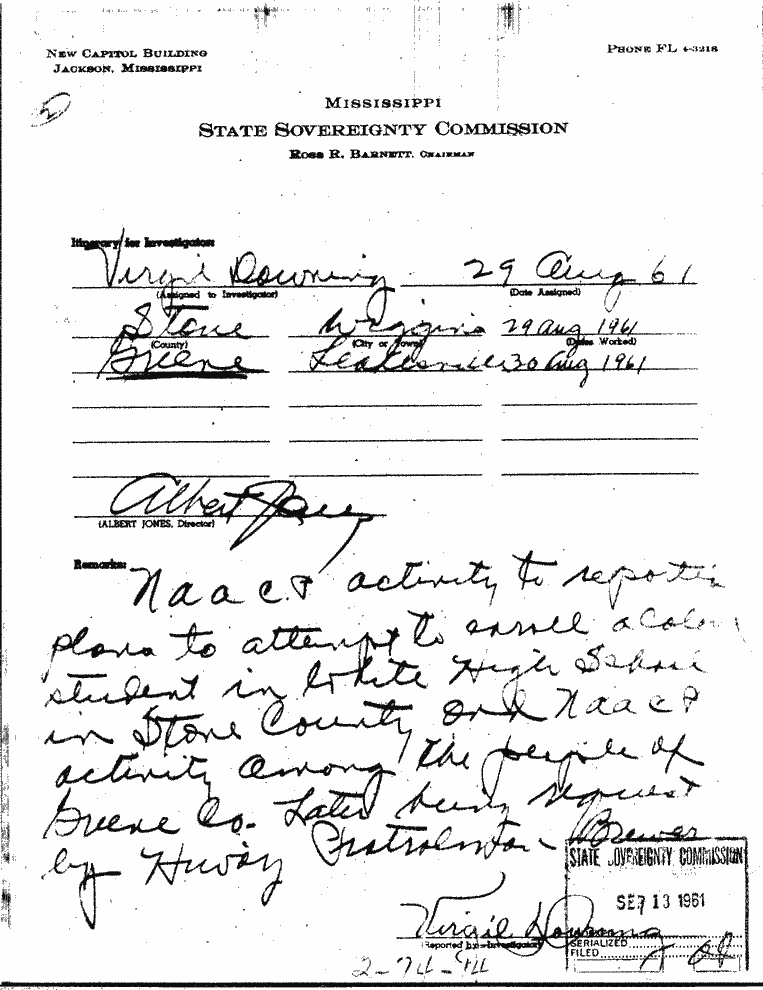 NEW CAPITOL BUILDING
JACKSON, MISSISSIPPI
PHONE FL 4-3218
2
MISSISSIPPI
STATE SOVEREIGNTY COMMISSION
ROSS R. BARNETT, CHAIRMAN
Itinerary for Investigator:
Virgil Downing 29 Aug 61
(Assigned to Investigator) (Date Assigned)
Stone Wiggins 29 Aug 1961
(County) (City or Town) (Dates Worked)
Greene Leakesville 30 Aug 1961
Albert Jones
(ALBERT JONES, Director)
Remarks:
NAACP activity to
plans to attempt to enroll a
student in White High School
in Stone County and NAACP
activity among the people of
Greene Co. Later being request
by Huway Brewer
STATE SOVEREIGNTY COMMISSION
SEP 13 1961
Virgil Downing
(Reported by - Investigator)
SERIALIZED
FILED
2-74-14